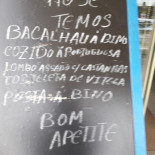 HOJE
TEMOS
BACALHAU À BRAS
COZIDO À PORTUGUESA
LOMBO ASSADO C/CASTANHAS
COSTELETA DE VITELA
BOM
APETITE